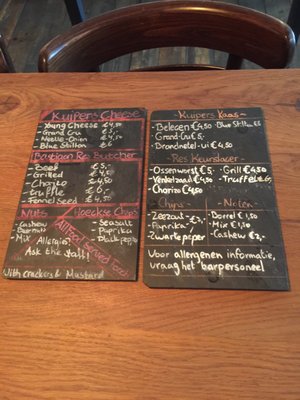 Kuipers Cheese
- Young Cheese €4,50
- Grand Cru €5
- Nettle-Onion €4,50
- Blue Stilton €6
Butcher
- Beef €5,-
- Grilled €4,50
- Chorizo €4,50
- Truffle €6,-
- Fennel Seed €4,50
Nuts
- Cashew
- Mix
Hoeksche Chips
- Seasalt
- Paprika
- Blackpepper
Allergies?
Ask the staff!
All Food Served
With crackers & Mustard
- Kuipers Kaas -
- Belegen €4,50
- Blue Stilton €6
- Grand Cru €5
- Brandnetel-ui €4,50
- Res Keurslager -
- Ossenworst €5
- Grill €4,50
- Venkelzaad €4,50
- Truffel €6
- Chorizo €4,50
- Chips -
- Zeezout
- Paprika
- Zwarte peper
- Noten -
- Borrel €1,50
- Mix €1,50
- Cashew €2,-
Voor allergenen informatie,
vraag het barpersoneel